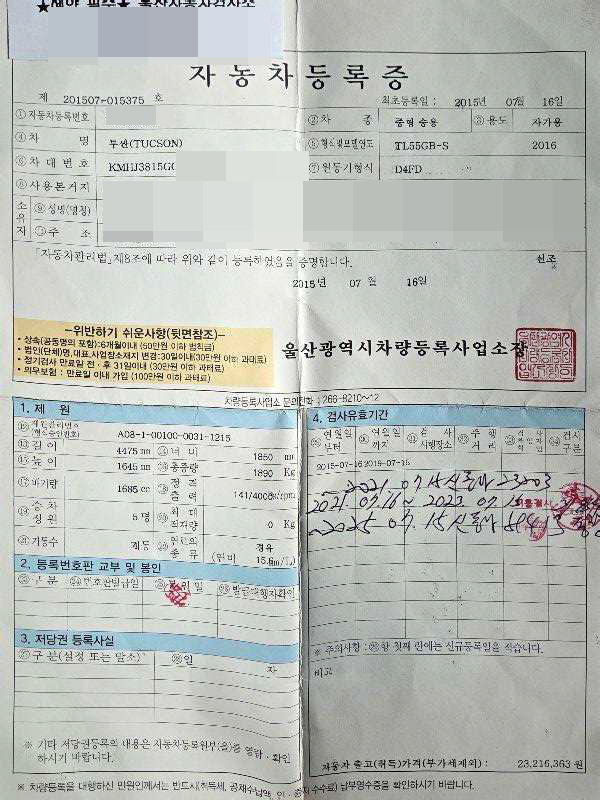 자동차등록증
제 201507-015375 호 최초등록일 : 2015년 07월 16일
① 자동차등록번호 ② 차 종 중형 승용 ③ 용도 자가용
④ 차 명 투싼(TUCSON) ⑤ 형식및모델연도 TL55GB-S 2016
⑥ 차 대 번 호 KMHJ3815G ⑦ 원동기형식 D4FD
⑧ 사용본거지
소유자 ⑨ 성명(명칭)
주 소
「자동차관리법」제8조에 따라 위와 같이 등록하였음을 증명합니다. 신조
2015년 07월 16일
-위반하기 쉬운사항(뒷면참조)-
· 상속(공동명의 포함):6개월이내 (50만원 이하 범칙금)
· 법인(단체)명,대표,사업장소재지 변경:30일이내(30만원 이하 과태료)
· 정기검사 만료일 전·후 31일이내 (30만원 이하 과태료)
· 의무보험 : 만료일 이내 가입 (100만원 이하 과태료)
울산광역시차량등록사업소장
차량등록사업소 문의전화 : 266-8210~12
1. 제 원
제원관리번호 (형식승인번호) A08-1-00100-0031-1215
길 이 4475 mm 너 비 1850 mm
높 이 1645 mm 총중량 1890 Kg
배기량 1685 cc 정격출력 141/4000 /rpm
승차정원 5 명 최대적재량 0 Kg
기통수 4기통 연료의 종류 경유 (연비 15.6 m/L)
2. 등록번호판 교부 및 봉인
구 분 번호판발급일 봉인일 발급대행자확인
3. 저당권 등록사실
구 분(설정 또는 말소) 일 자
※ 기타 저당권등록의 내용은 자동차등록원부(을)를 열람·확인
하시기 바랍니다.
4. 검사유효기간
연월일부터 연월일까지 검사시행장소 주행거리 검사구분
2015-07-16 2019-07-15
2021 07.15
2021. 07.16 ~ 2023 07.15
~2025 07.15
※ 주의사항 : 항 첫째 란에는 신규등록일을 적습니다.
비고
자동차 출고(취득)가격(부가세제외) : 23,216,363 원